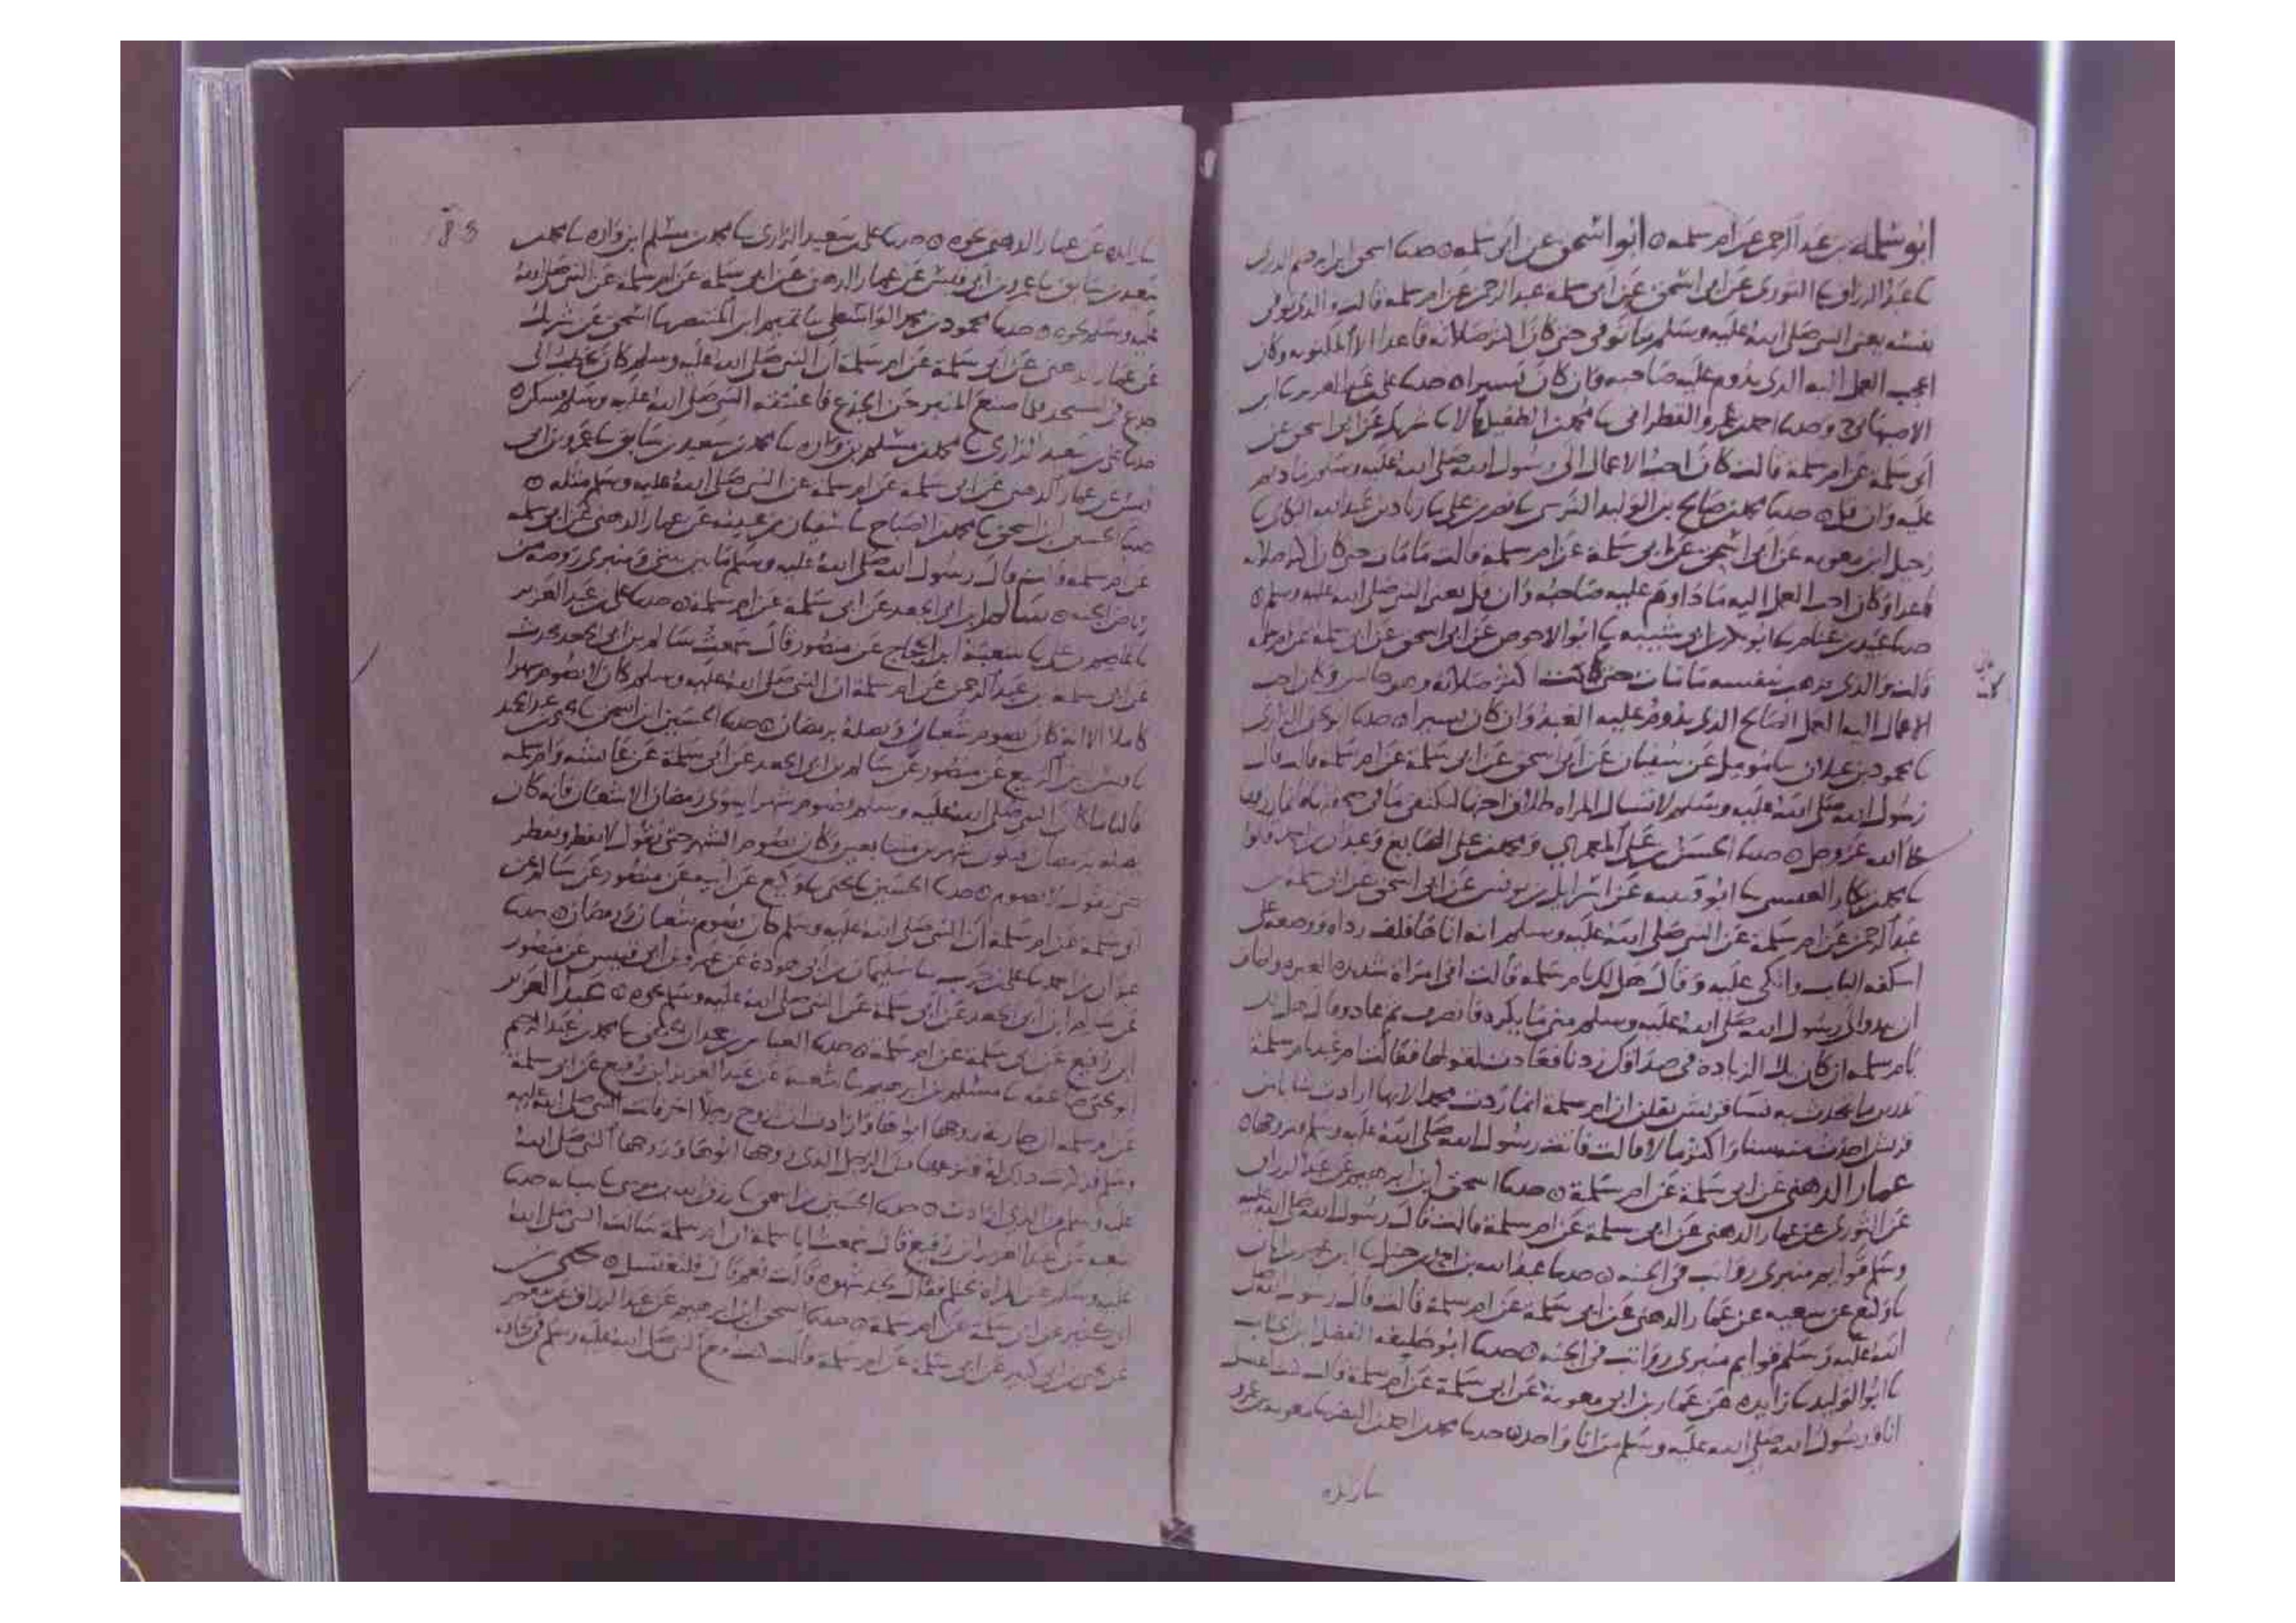 ابو سلمة بن عبد الرحمن عن ام سلمه ○ ابو اسحق عن ابى سلمه ○ حدثنا اسحق ابن ابراهيم الدبرى
عبد الرزاق الثورى عن ابى اسحق عن ابى سلمة عبد الرحمن عن ام سلمه قالت والذى توفى
نفسه يعنى النبى صلى الله عليه وسلم ما توفى حتى كان اكثر صلاته قاعدا الا المكتوبه وكان
اعجب العمل اليه الذى يدوم عليه صاحبه وان كان يسيرا ○ حدثنا على عبد العزيز ابن
الاصبهانى ح وحدثنا احمد عمرو القطرانى محمد الطفيل قالا شريك عن ابى اسحق عن
ابى سلمة عن ام سلمة قالت كان احب الاعمال الى رسول الله صلى الله عليه وسلم ما ديم
عليه وان قل ○ حدثنا محمد صالح بن الوليد النرسى نصر بن على زياد بن عبد الله البكاى
زحيل ابن معويه عن ابى اسحق عن ابى سلمة عن ام سلمة قالت ما مات حتى كان اكثر صلاته
قاعدا وكان احب العمل اليه ما داوم عليه صاحبه وان قل يعنى النبى صلى الله عليه وسلم ○
حدثنا عبيد بن غنام ابو بكر ابى شيبه ابو الاحوص عن ابى اسحق عن ابى سلمة عن ام سلمة
قالت والذى ذهب بنفسه ما مات حتى كانت اكثر صلاته وهو جالس وكان احب
الاعمال اليه العمل الصالح الذى يدوم عليه العبد وان كان يسيرا ○ حدثنا ابو يحيى الرازى
محمود بن غيلان مومل عن سفيان عن ابى اسحق عن ابى سلمة عن ام سلمة قالت قال
رسول الله صلى الله عليه وسلم لا تسال المراه طلاق اختها لتكتفى ما فى صحفتها فانما رزقها
على الله عز وجل ○ حدثنا الحسن بن على المعمرى ومحمد على الصايغ وعبدان احمد قالوا
محمد بكار العيسى ابو قتيبه عن اسرائيل بن يونس عن ابى اسحق عن ابى سلمة بن
عبد الرحمن عن ام سلمة عن النبى صلى الله عليه وسلم انه اتاها فلف رداه ووضعه على
اسكفه الباب واتكى عليه وقال هل لك يا ام سلمه قالت انى امراة شديده الغيره واخاف
ان يبدو الى رسول الله صلى الله عليه وسلم منى ما يكره فانصرف ثم عاد وقال هل لك
يا ام سلمه ان كان بك الزيادة فى صداقك زدنا فعادت لقولها فقالت ام عبد يا ام سلمة
تدرين ما يتحدث به نسا قريش يقلن ان ام سلمة انما ردت محمد لانها ارادت شابا من
قريش احدث منه سنا واكثر مالا قالت فاتت رسول الله صلى الله عليه وسلم فتزوجها ○
عمار الدهنى عن ابى سلمة عن ام سلمة ○ حدثنا اسحق ابن ابراهيم عن عبد الرزاق
عن الثورى عن عمار الدهنى عن ابى سلمة عن ام سلمة قالت قال رسول الله صلى الله عليه
وسلم قوايم منبرى رواتب فى الجنه ○ حدثنا عبد الله بن احمد بن حنبل ابى
وكيع عن شعبه عن عمار الدهنى عن ابى سلمة عن ام سلمة قالت قال رسول الله صلى
الله عليه وسلم قوايم منبرى رواتب فى الجنه ○ حدثنا ابو خليفه الفضل ابن الحباب
ابو الوليد زايده عن عمار بن ابى معوية عن ابى سلمة عن ام سلمة قالت كنت اغتسل
انا ورسول الله صلى الله عليه وسلم من انا واحد ○ حدثنا محمد احمد النضر معويه بن عمرو
زايده
زايده عن عمار الدهنى نحوه ○ حدثنا على سعيد الرازى محمد بن مسلم ابن واره محمد
سعيد بن سابق عمرو بن ابى قيس عن عمار الدهنى عن ابى سلمة عن ام سلمة عن النبى صلى الله
عليه وسلم نحوه ○ حدثنا محمود بن محمد الواسطى تميم ابن المنتصر اسحق عن شريك
عن عمار الدهنى عن ابى سلمة عن ام سلمة ان النبى صلى الله عليه وسلم كان يخطب الى
جذع فى المسجد فلما صنع المنبر حن الجذع فاعتنقه النبى صلى الله عليه وسلم فسكن ○
حدثنا على سعيد الرازى محمد مسلم بن واره محمد بن سعيد بن سابق عمرو بن ابى
قيس عن عمار الدهنى عن ابى سلمة عن ام سلمة عن النبى صلى الله عليه وسلم مثله ○
حدثنا الحسين ابن اسحق محمد الصباح سفيان بن عيينه عن عمار الدهنى عن ابى سلمة
عن ام سلمة قالت قال رسول الله صلى الله عليه وسلم ما بين بيتى ومنبرى روضه من
رياض الجنه ○ سالم ابن ابى الجعد عن ابى سلمة عن ام سلمة ○ حدثنا على بن عبد العزيز
عاصم بن على شعبة ابن الحجاج عن منصور قال سمعت سالم بن ابى الجعد يحدث
عن ابى سلمه بن عبد الرحمن عن ام سلمة ان النبى صلى الله عليه وسلم كان لا يصوم شهرا
كاملا الا انه كان يصوم شعبان ويصله برمضان ○ حدثنا الحسين ابن اسحق يحيى عبد الحميد
قيس بن الربيع عن منصور عن سالم بن ابى الجعد عن ابى سلمة عن عائشه وام سلمه
قالتا ما كان النبى صلى الله عليه وسلم يصوم شهرا سوى رمضان الا شعبان فانه كان
يصله برمضان فيكون شهرين متتابعين وكان يصوم الشهر حتى نقول لا يفطر ويفطر
حتى نقول لا يصوم ○ حدثنا الحسين يحيى وكيع عن ابيه عن منصور عن سالم عن
ابى سلمة عن ام سلمة ان النبى صلى الله عليه وسلم كان يصوم شعبان ورمضان ○ حدثنا
عبدان بن احمد على حرب سليمان بن ابى هوذة عن عمرو بن ابى قيس عن منصور
عن سالم ابن ابى الجعد عن ابى سلمة عن النبى صلى الله عليه وسلم نحوه ○ عبد العزيز
ابن رفيع عن ابى سلمة عن ام سلمة ○ حدثنا العباس بن حمدان الحنفى محمد بن عبد الرحيم
ابو يحيى صاعقه مسلم بن ابرهيم شعبة عن عبد العزيز ابن رفيع عن ابى سلمة
عن ام سلمه ان جارية زوجها ابوها وارادت ان تزوج رجلا اخر فاتت النبى صلى الله عليه
وسلم فذكرت ذلك له فنزعها من الرجل الذى زوجها ابوها وزوجها النبى صلى الله
عليه وسلم من الذى ارادت ○ حدثنا الحسين بن اسحق رزق الله بن موسى شبابه حدثنا
شعبه عن عبد العزيز ابن رفيع قال سمعت ابا سلمة ان ام سلمة سالت النبى صلى الله
عليه وسلم عن المراه تحتلم فقال تجد شهوه قالت نعم قال فلتغتسل ○ يحيى بن
ابى كثير عن ابى سلمة عن ام سلمة ○ حدثنا اسحق ابن ابرهيم عن عبد الرزاق عن معمر
عن يحيى بن ابى كثير عن ابى سلمة عن ام سلمة قالت كنت مع النبى صلى الله عليه وسلم فى لحافه